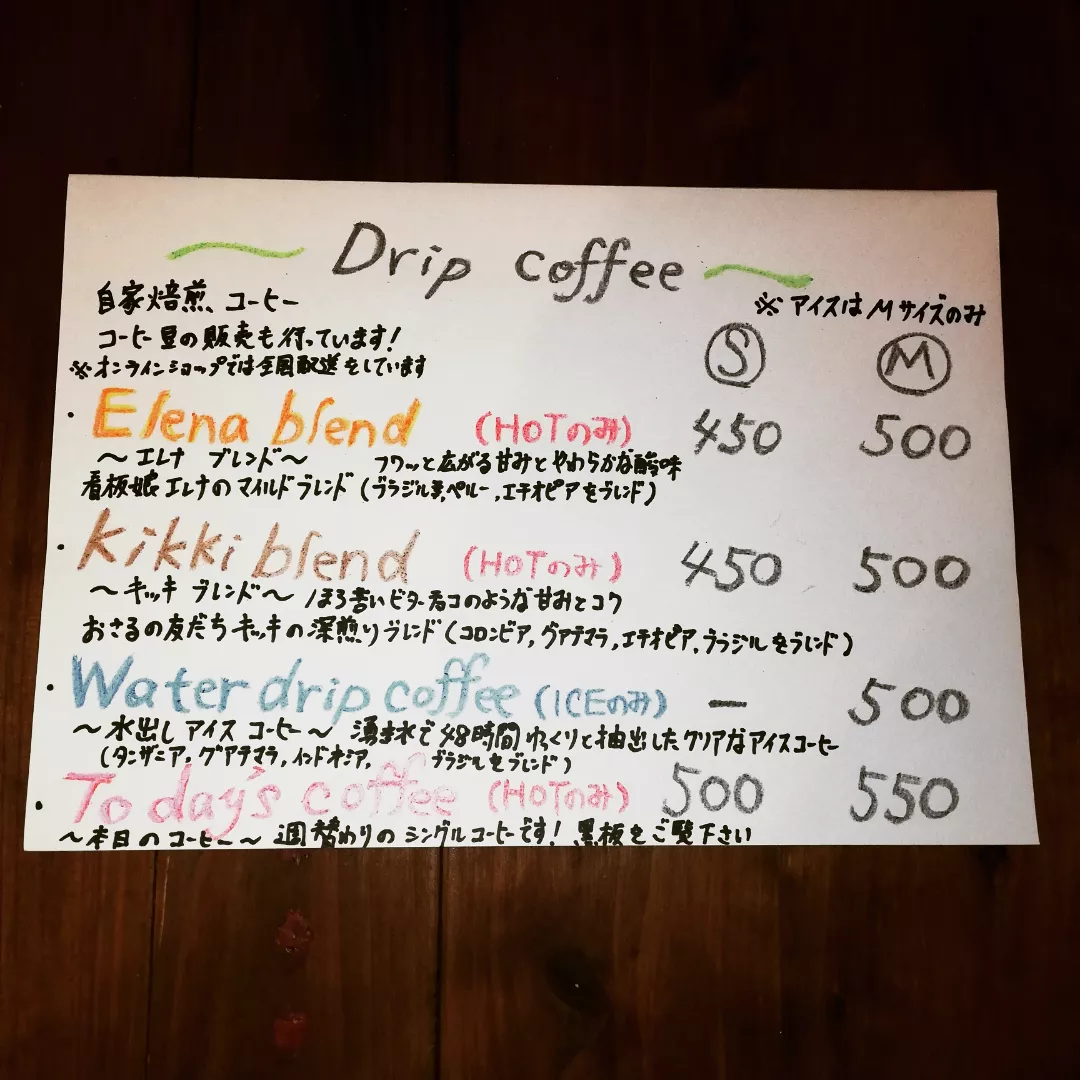 ~ Drip coffee ~
自家焙煎、コーヒー
コーヒー豆の販売も行っています!
※オンラインショップでは全国配送をしています
※アイスはMサイズのみ
S M
・Elena blend (HOTのみ) 450 500
〜エレナ ブレンド〜 フワッと広がる甘みとやわらかな酸味
看板娘エレナのマイルドブレンド(ブラジル,ペルー,エチオピアをブレンド)
・kikki blend (HOTのみ) 450 500
〜キッキ ブレンド〜 ほろ苦いビターチョコのような甘みとコク
おさるの友だちキッキの深煎りブレンド(コロンビア,グアテマラ,エチオピア,ブラジルをブレンド)
・Water drip coffee (ICEのみ) — 500
〜水出しアイスコーヒー〜 湧き水で48時間ゆっくりと抽出したクリアなアイスコーヒー
(タンザニア,グアテマラ,インドネシア, ブラジルをブレンド)
・Today's coffee (HOTのみ) 500 550
〜本日のコーヒー〜 週替わりのシングルコーヒーです! 黒板をご覧下さい